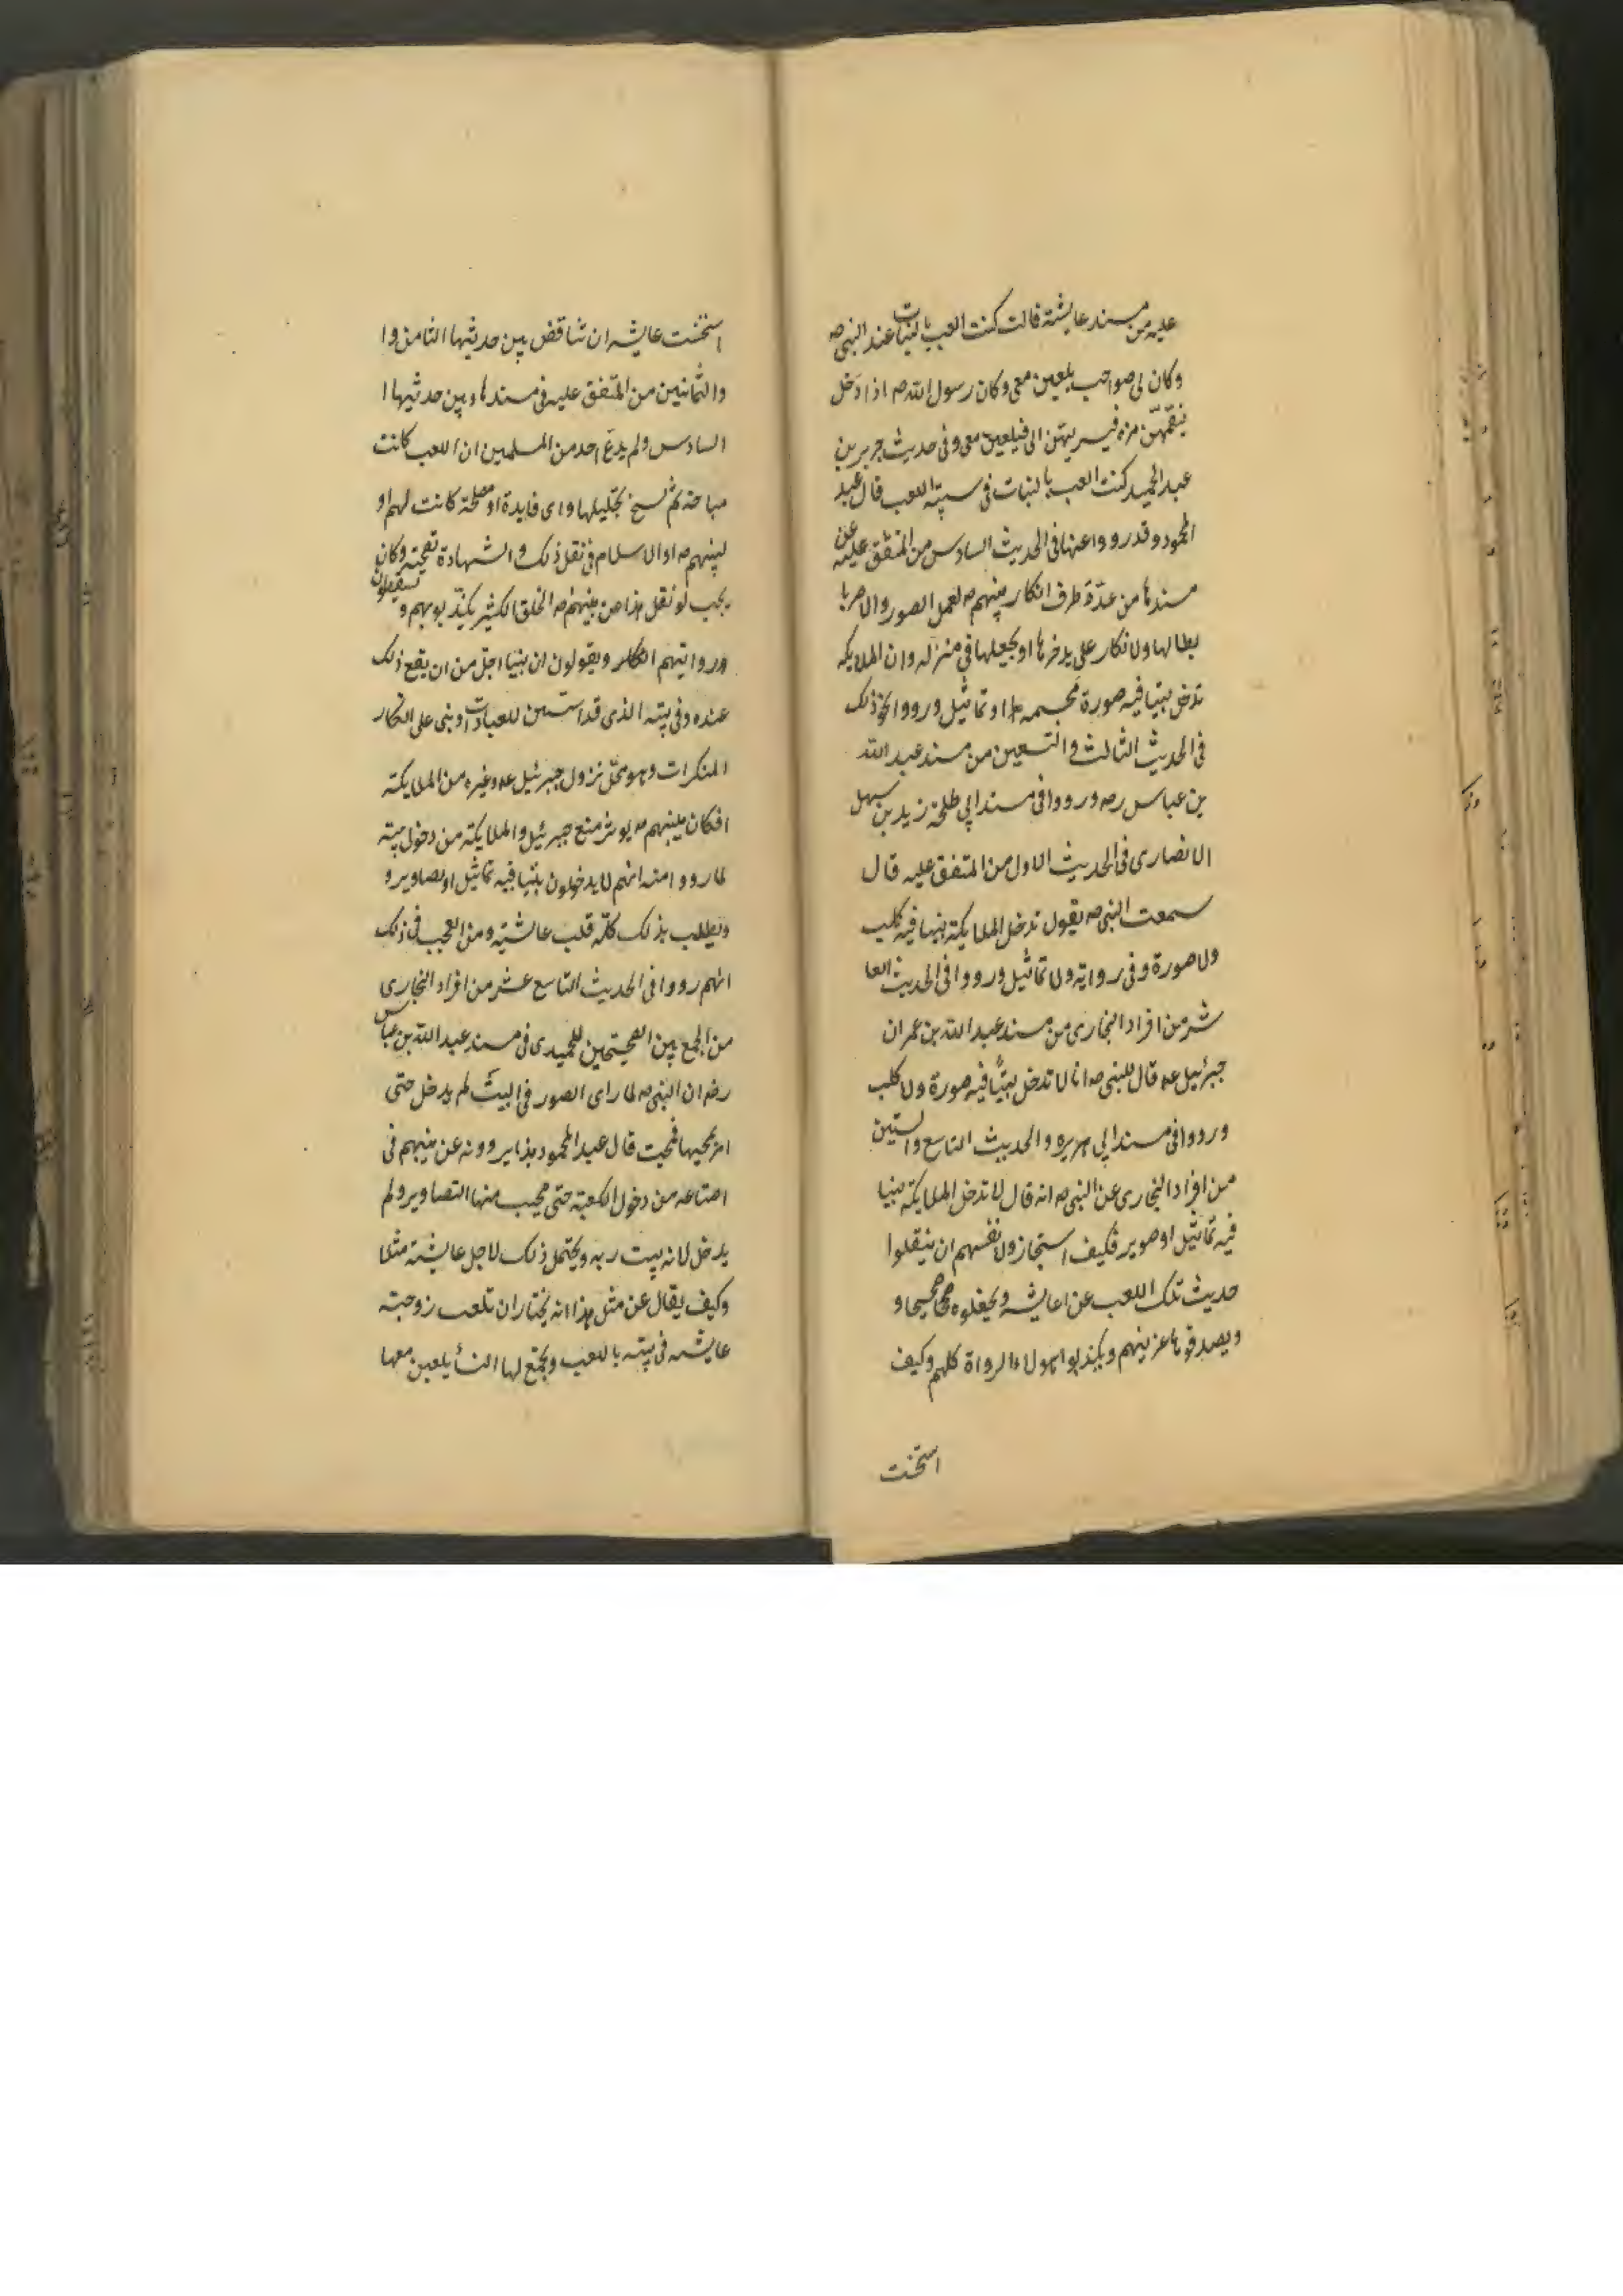 عليه من مسند عايشة قالت كنت العب بالبنات عند النبى ص
وكان لى صواحب يلعبن معى وكان رسول الله ص اذا دخل
ينقمعن منه فيسر بهن الى فيلعبن معى وفى حديث جرير بن
عبد الحميد كنت العب بالبنات فى بيته اللعب قال عبد
المحمود وقد رووا عنها فى الحديث السادس من المتفق عليه عن
مسندها من عدة طرف انكار نبيهم ص لعمل الصور والامر با
بطالها ولانكار على يدخرها او يجعلها فى منزله وان الملايكه
تدخل بيتا فيه صورة مجسمه او تماثيل ورووا نحو ذلك
فى الحديث الثالث والتسعين من مسند عبد الله
بن عباس ره ورووا فى مسند ابى طلحة زيد بن سهل
الانصارى فى الحديث الاول من المتفق عليه قال
سمعت النبى ص يقول تدخل الملايكة بيتا فيه كلب
ولا صورة وفى رواية ولا تماثيل ورووا فى الحديث العا
شر من افراد البخارى من مسند عبد الله بن عمر ان
جبرئيل عه قال للنبى ص انا لا تدخل بيتًا فيه صورة ولا كلب
ورووا فى مسند ابى هريره والحديث التاسع والستين
من افراد البخارى عن النبى ص انه قال لا تدخل الملايكة بيتا
فيه تماثيل او صوير فكيف استجازو لانفسهم ان ينقلوا
حديث تلك اللعب عن عايشه ويجعلوه صحيحا و
ويصدقوها عن نبيهم ويكذبوا هولاء الرواة كلهم وكيف
استحنت
استحنت عايشه ان تناقض بين حديثها الثامن وا
والثمانين من المتفق عليه فى مسندها وبين حديثها ا
السادس ولم يدع احد من المسلمين ان اللعب كانت
مباحة ثم نسخ تحليلها واى فايدة او مصلحة كانت لهم او
لنبيهم ص او الاسلام فى نقل ذلك والشهادة بصحته وكان
يجب لو نقل هذا من نبيهم ص الخلق الكثير يكذّبوهم و يسقطون
وروايتهم انكار ويقولون ان نبينا اجل من ان يقع ذلك
عنده وفى بيته الذى قد اسس للعبادات وبنى على انكار
المنكرات وهو محل نزول جبرئيل عه وغيره من الملايكة
افكان نبيهم ص يوثر منع جبرئيل والملايكة من دخول بيته
لما رووا منه انهم لا يدخلون بيتا فيه تماثيل او تصاوير و
ويطلب بذلك كله قلب عايشة ومن العجب فى ذلك
انهم رووا فى الحديث التاسع عشر من افراد البخارى
من الجمع بين الصحيحين للحميدى فى مسند عبد الله بن عباس
رض ان النبى ص لما راى الصور فى البيت لم يدخل حتى
امر بمحيها فمحيت قال عبد المحمود هذا يروونه عن نبيهم فى
امتناعه من دخول الكعبة حتى محيت منها التصاوير ولم
يدخل لانه بيت ربه ويحتمل ذلك لاجل عايشة مثلا
وكيف يقال عن مثل هذا انه يختار ان تلعب زوجته
عايشه فى بيته باللعب ويجمع لها النسأ يلعبن معها